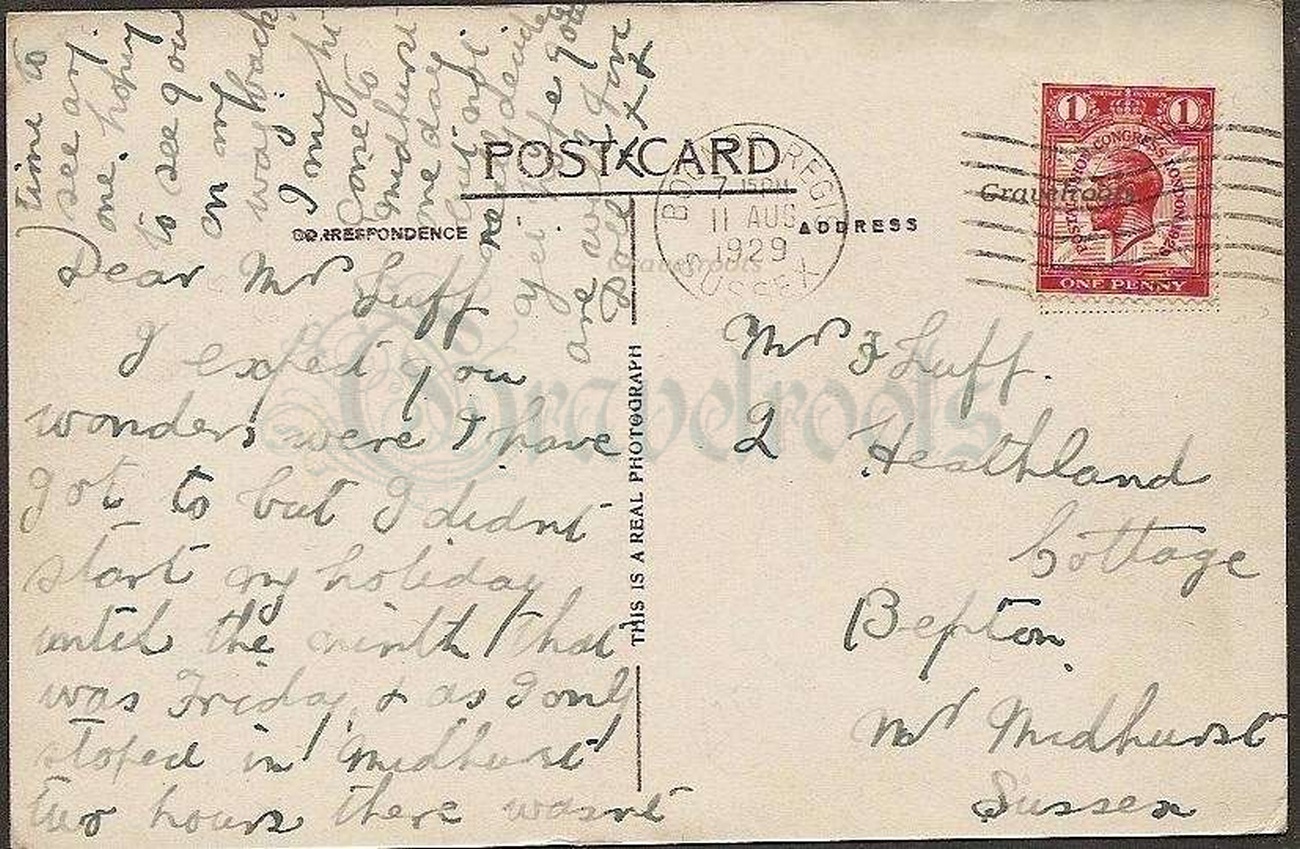 POST CARD
CORRESPONDENCE
ADDRESS
THIS IS A REAL PHOTOGRAPH
Dear Mrs Luff
I expect you
wonders were I have
got to but I didnt
start my holiday
until the ninth that
was Friday, & as I only
stoped in Midhurst
two hours there wasnt
time to
see any
one. hopeing
to see you
on my
way back
I might
come to
Midhurst
one day
but not
decide
yet hope you
are well
Love
Doll
x x x
Mrs F Luff.
2 Heathland
Cottage
Bepton.
Nr Midhurst
Sussex
BOGNOR REGIS
7.15 PM
11 AUG
1929
SUSSEX
1 1
POSTAL UNION CONGRESS LONDON 1929
POSTAGE REVENUE
ONE PENNY
Gravelroots
Gravelroots
Gravelroots